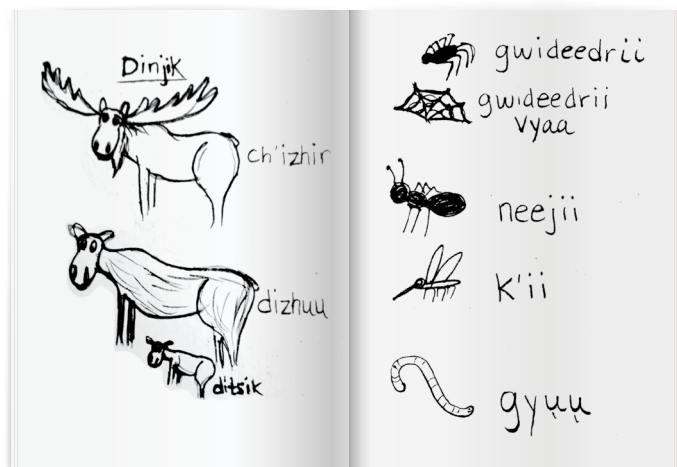 Dinjik
ch'izhir
dizhuu
ditsik
gwideedrii
gwideedrii
vyaa
neejii
k'ii
gyų̀ų̀